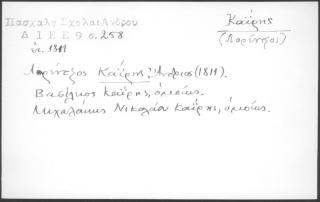 Πασχάλη Σχολαί Άνδρου
ΔΙΕΕ 9 σ. 258
ἐτ. 1811
Καΐρης
(Λαρέντζος)
Λαρέντζος Καΐρης, Ἄνδριος (1811).
Βασίλειος Καΐρης, ὁμοίως.
Μιχαλάκης Νικολάου Καΐρης, ὁμοίως.